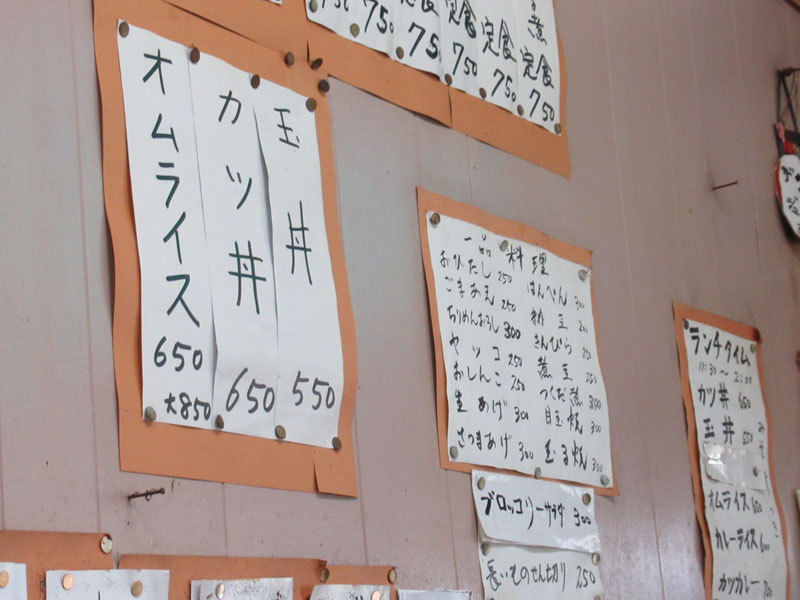 定食 750
定食 750
煮定食 750
玉丼 550
カツ丼 650
オムライス 650
大850
一品料理
おひたし 250
ごまあえ 250
ちりめんおろし 300
ヤッコ 250
おしんこ 250
生あげ 300
さつまあげ 300
はんぺん 300
納豆 200
きんぴら 250
煮豆 250
つくだ煮 300
目玉焼 300
玉子焼 300
ブロッコリーサラダ 300
長いものせん切り 250
ランチタイム
11:30～2:00
カツ丼 650
玉丼 550
オムライス 650
カレーライス 600
カツカレー